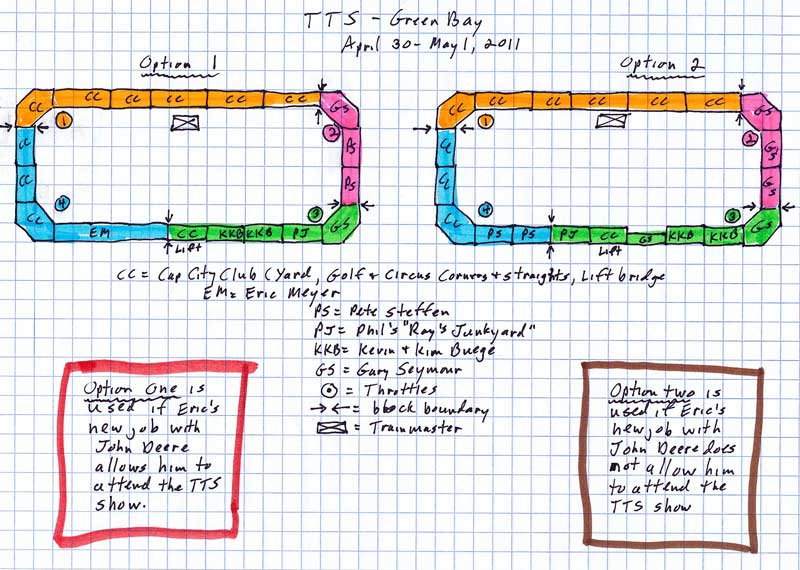 TTS - Green Bay
April 30 - May 1, 2011
Option 1
CC CC CC CC CC CC GS
1
2
PS
PS
CC
CC
4
3
CC EM CC KKB KKB PJ GS
Lift
Option 2
CC CC CC CC CC CC GS
1
2
GS
GS
CC
CC
4
3
CC PS PS PJ CC GS KKB KKB GS
Lift
CC = Cap City Club (Yard, Golf + Circus Corners + straights, Lift bridge
EM= Eric Meyer
PS= Pete Steffen
PJ= Phil's "Ray's Junkyard"
KKB= Kevin + Kim Buege
GS = Gary Seymour
= Throttles
→←= block boundary
= Trainmaster
Option One is
used if Eric's
new job with
John Deere
allows him to
attend the TTS
show.
Option two is
used if Eric's
new job with
John Deere does
not allow him
to attend the
TTS show